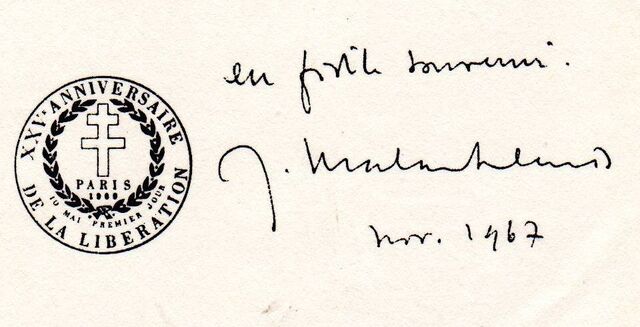 XXVe ANNIVERSAIRE
PARIS
1969
10 MAI PREMIER JOUR
DE LA LIBERATION
en fidèle souvenir.
J.
nov. 1967